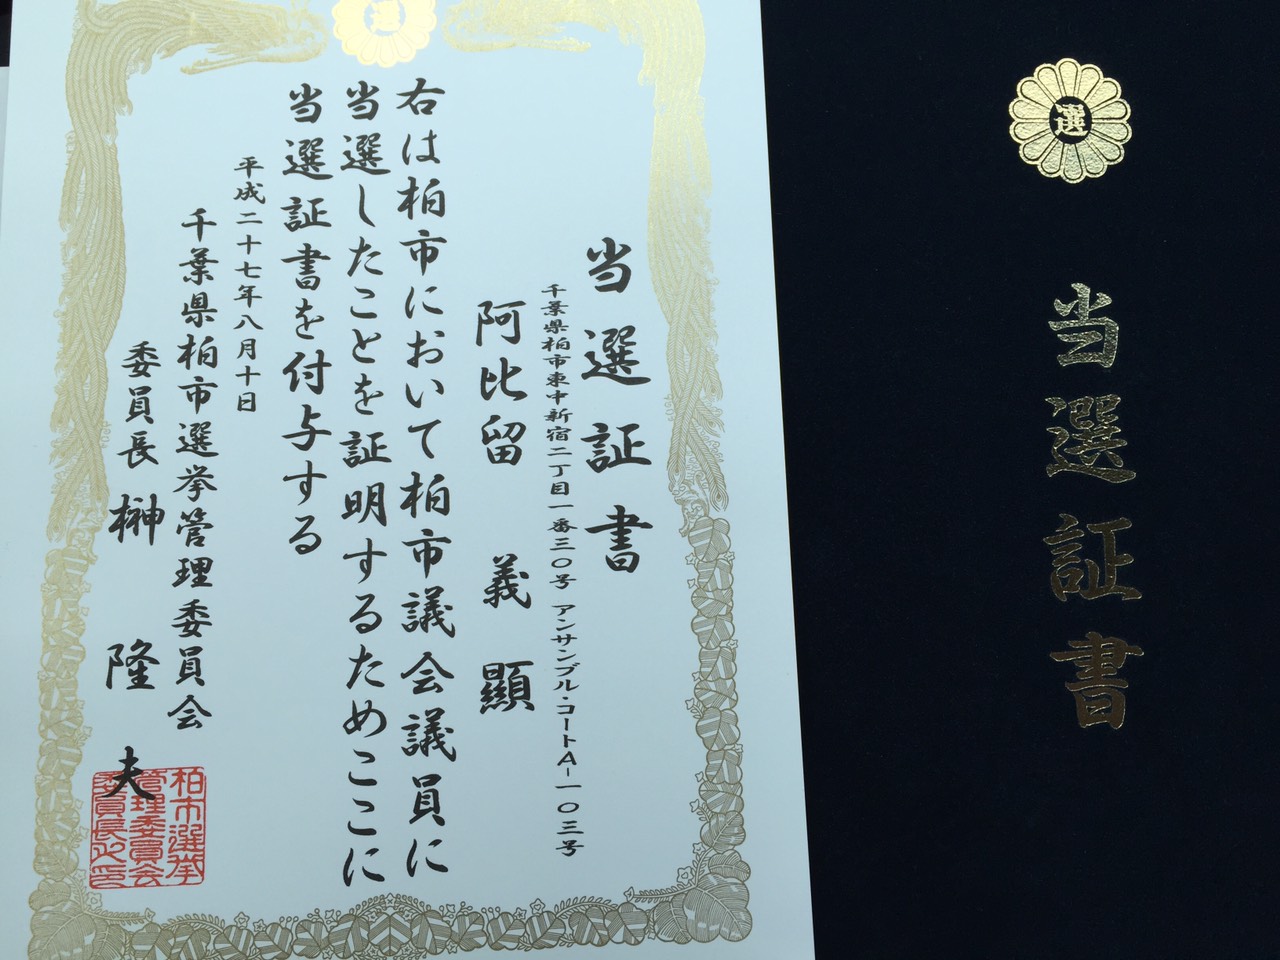 選
当選証書
千葉県柏市東中新宿二丁目一番三〇号 アンサンブル・コートA-一〇三号
阿比留 義顯
右は柏市において柏市議会議員に
当選したことを証明するためここに
当選証書を付与する
平成二十七年八月十日
千葉県柏市選挙管理委員会
委員長 榊 隆夫
柏市選挙
管理委員会
委員長之印
選
当選証書